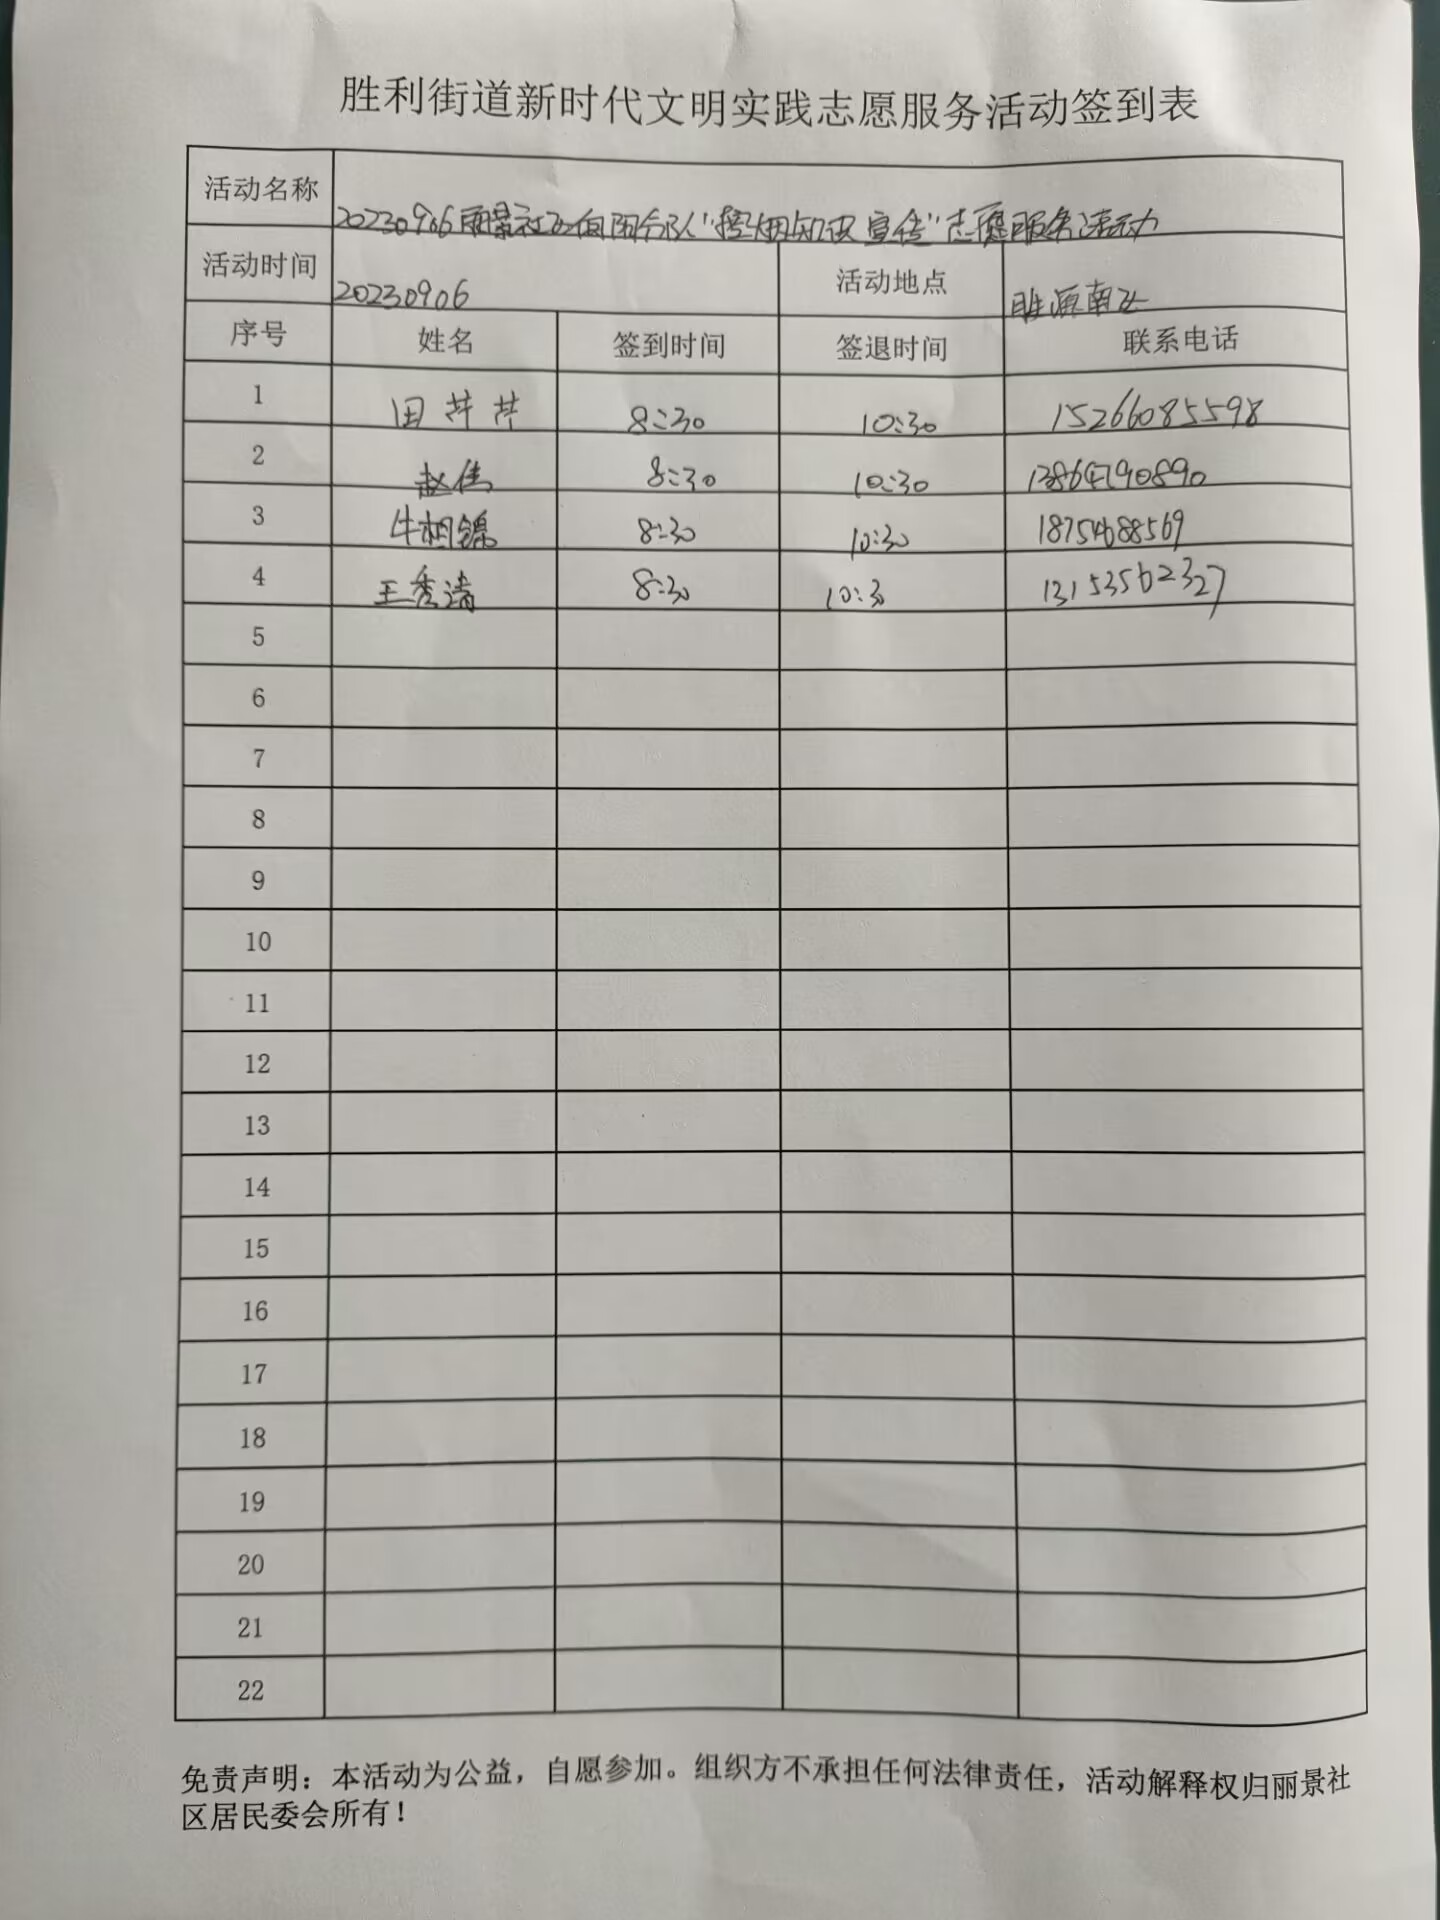 胜利街道新时代文明实践志愿服务活动签到表
活动名称 20230906丽景社区向阳分队“控烟知识宣传”志愿服务活动
活动时间 20230906 活动地点 胜源南区
序号 姓名 签到时间 签退时间 联系电话
1 田芹芹 8:30 10:30 15266085598
2 赵佳 8:30 10:30 13864790890
3 牛相锦 8:30 10:30 18754688569
4 王秀清 8:30 10:3 13153562327
5
6
7
8
9
10
11
12
13
14
15
16
17
18
19
20
21
22
免责声明：本活动为公益，自愿参加。组织方不承担任何法律责任，活动解释权归丽景社
区居民委会所有！